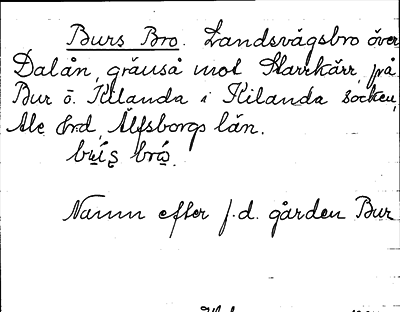 Burs Bro. Landsvägsbro över
Dalån, gränså mot Starrkärr, på
Bur ö. Kilanda i Kilanda socken,
Ale hrd, Älfsborgs län.
Namn efter f.d. gården Bur